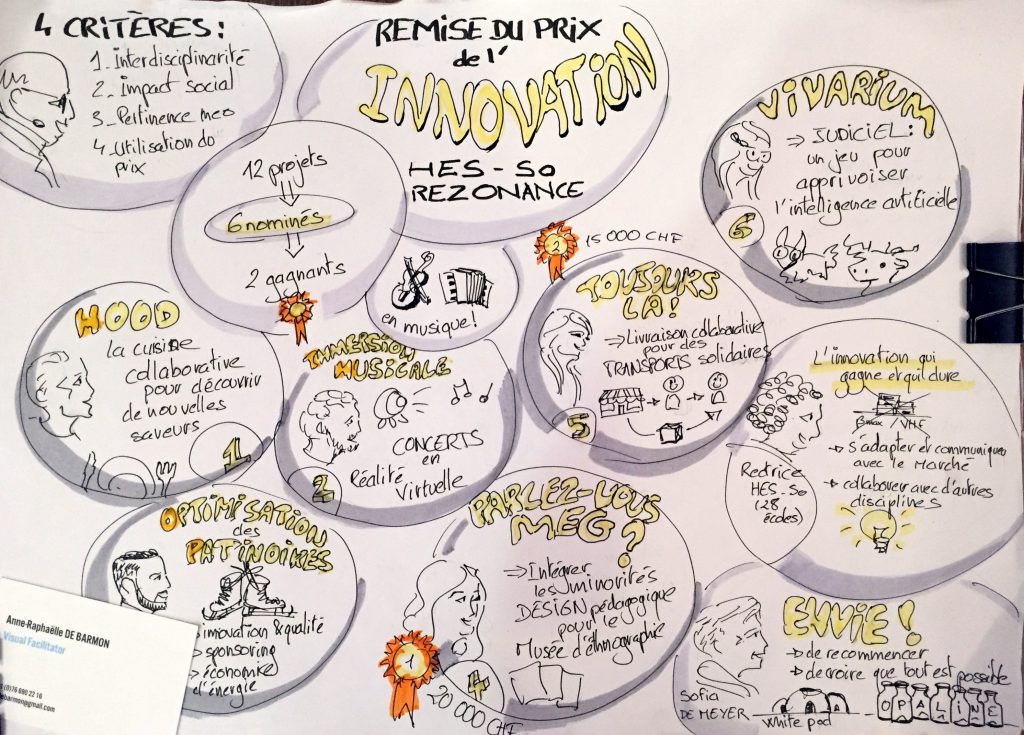 4 CRITÈRES :
1_ Interdisciplinarité
2_ Impact social
3_ Pertinence
4_ Utilisation du
prix
REMISE DU PRIX
de l'
INNOVATION
HES-SO
REZONANCE
12 projets
6 nominés
2 gagnants
en musique !
VIVARIUM
⇒ JUDICIEL :
un jeu pour
apprivoiser
l'intelligence artificielle
6
HOOD
la cuisine
collaborative
pour découvrir
de nouvelles
saveurs
1
IMMERSION
MUSICALE
CONCERTS
en
Réalité
Virtuelle
2
2
15 000 CHF
TOUJOURS
LÀ !
⇒ Livraison collaborative
pour des
TRANSPORTS solidaires
5
L'innovation qui
gagne et qui dure
Betamax / VHS
→ s'adapter et communiquer
avec le marché
→ collaborer avec d'autres
disciplines
Rectrice
HES-SO
(28
écoles)
OPTIMISATION
des
PATINOIRES
innovation & qualité
sponsoring
→ économie
d'énergie
PARLEZ-VOUS
MEG ?
⇒ Intégrer
les minorités
DESIGN pédagogique
pour le
Musée d'ethnographie
1
20 000 CHF
4
ENVIE !
→ de recommencer
→ de croire que tout est possible
Sofia
DE MEYER
White pod
OPALINE
Anne-Raphaëlle DE BARMON
Visual Facilitator
(0)76 690 22 16
ebarmon@gmail.com